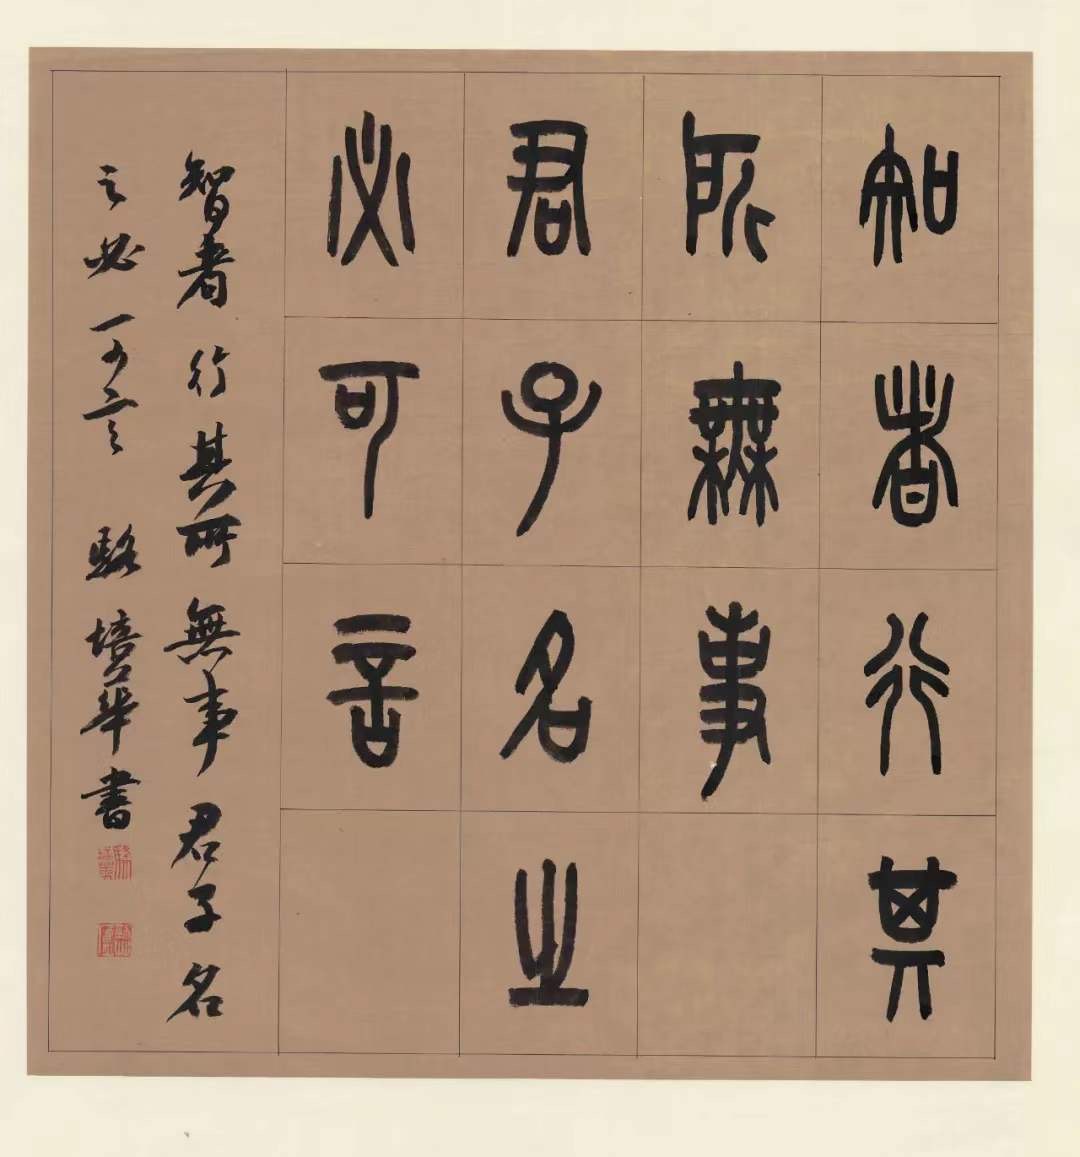 知者行其
所無事
君子名之
必可言
智者行其所無事君子名
之必可言 駱培華書